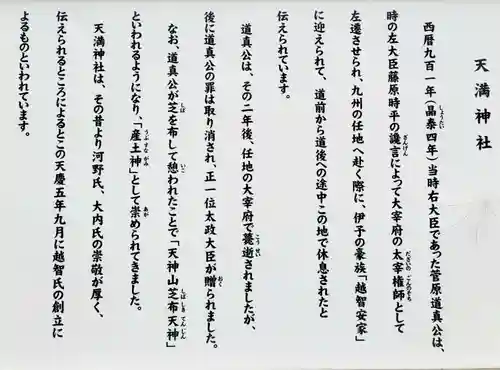 天満神社
西暦九百一年(昌泰四年)当時右大臣であった菅原道真公は、
時の左大臣藤原時平の讒言によって大宰府の太宰権師として
左遷させられ、九州の任地へ赴く際に、伊予の豪族「越智安家」
に迎えられて、道前から道後への途中この地で休息されたと
伝えられています。
道真公は、その二年後、任地の大宰府で薨逝されましたが、
後に道真公の罪は取り消され、正一位太政大臣が贈られました。
なお、道真公が芝を布して憩われたことで「天神山芝布天神」
といわれるようになり、「産土神」として崇められてきました。
天満神社は、その昔より河野氏、大内氏の崇敬が厚く、
伝えられるところによるとこの天慶五年九月に越智氏の創立に
よるものといわれています。